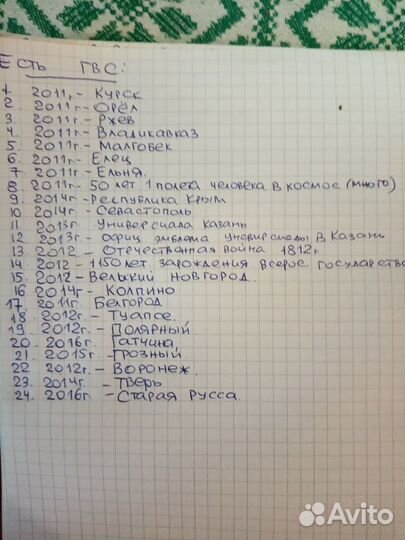 Есть ГВС:
1. 2011г. - Курск
2. 2011г. - Орёл
3. 2011г. - Ржев
4. 2011г. - Владикавказ
5. 2011г. - Малгобек
6. 2011г. - Елец
7. 2011г. - Ельня.
8. 2011г. - 50 лет 1 полета человека в космос (много)
9. 2014г - Республика Крым
10. 2014г. - Севастополь
11. 2013г. Универсиада Казань
12. 2013г. - офиц. эмблема универсиады в Казани
13. 2012 - Отечественная война 1812г
14. 2012 - 1150 лет зарождения всерос государства
15. 2012 - Великий Новгород.
16. 2014г - Колпино
17. 2011г. Белгород
18. 2012г. - Туапсе.
19. 2012г. - Полярный
20. 2016г. Гатчина,
21. 2015г. - Грозный
22. 2012г. - Воронеж.
23. 2014г. - Тверь
24. 2016г. - Старая Русса.
Avito